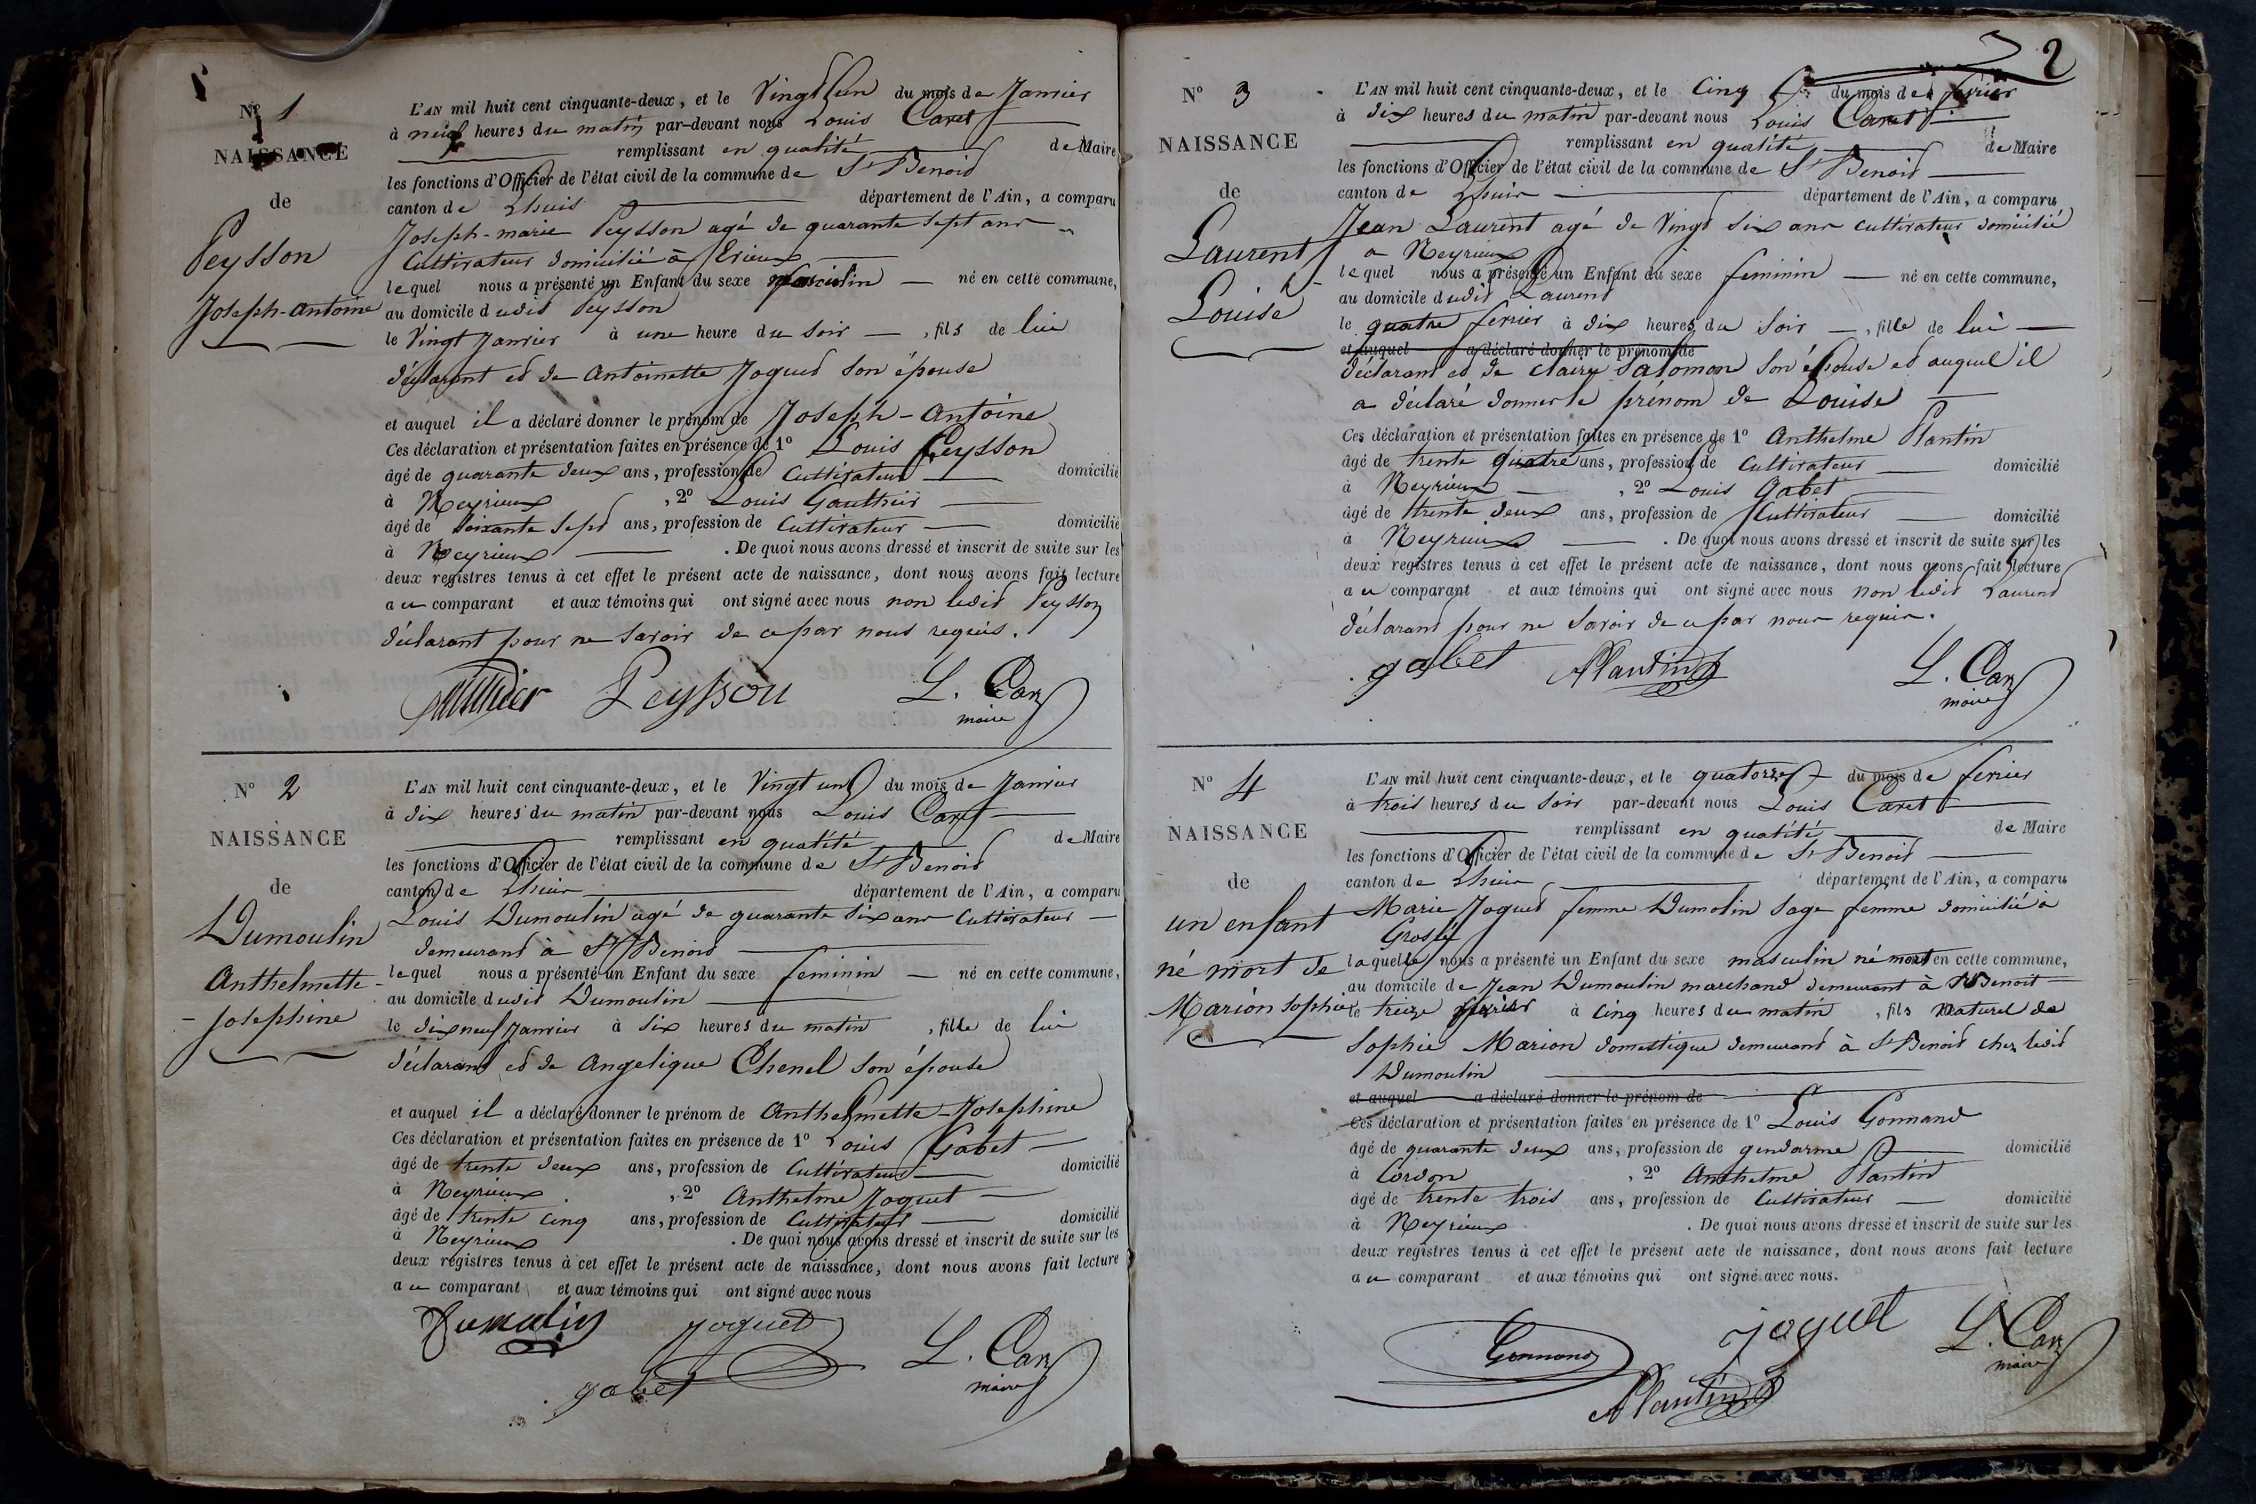 N° 1
NAISSANCE
de
Peysson
Joseph-Antoine
L'AN mil huit cent cinquante-deux, et le Vingt un du mois de Janvier
à neuf heures du matin par-devant nous Louis Caret
remplissant en qualité de Maire
les fonctions d'Officier de l'état civil de la commune de St Benoid
canton de Lhuis département de l'Ain, a comparu
Joseph-marie Peysson agé de quarante sept ans
Cultivateur domicilié à Erieux
lequel nous a présenté un Enfant du sexe masculin né en cette commune,
au domicile dudid Peysson
le Vingt Janvier à une heure du soir , fils de lui
déclarant ed de Antoinette Joqued son épouse
et auquel il a déclaré donner le prénom de Joseph-Antoine
Ces déclaration et présentation faites en présence de 1° Louis Peysson
âgé de quarante deux ans, profession de Cultivateur domicilié
à Neyrieux , 2° Louis Gauthier
âgé de soixante sepd ans, profession de Cultivateur domicilié
à Neyrieux . De quoi nous avons dressé et inscrit de suite sur les
deux registres tenus à cet effet le présent acte de naissance, dont nous avons fait lecture
au comparant et aux témoins qui ont signé avec nous non ledid Peysson
déclarant pour ne savoir de ce par nous requis.
Gauthier Peysson L. Caret
maire
N° 2
NAISSANCE
de
Dumoulin
Anthelmette-
-Josephine
L'AN mil huit cent cinquante-deux, et le Vingt un du mois de Janvier
à dix heures du matin par-devant nous Louis Caret
remplissant en qualité de Maire
les fonctions d'Officier de l'état civil de la commune de St Benoid
canton de Lhuis département de l'Ain, a comparu
Louis Dumoulin agé de quarante six ans Cultivateur
demeurand à St Benoid
lequel nous a présenté un Enfant du sexe feminin né en cette commune,
au domicile dudid Dumoulin
le dix neuf Janvier à six heures du matin , fille de lui
déclarand ed de Angelique Chenel son épouse
et auquel il a déclaré donner le prénom de Anthelmette-Josephine
Ces déclaration et présentation faites en présence de 1° Louis Gabet
âgé de trente deux ans, profession de Cultivateur domicilié
à Neyrieux , 2° Anthelme Joquet
âgé de trente cinq ans, profession de Cultivateur domicilié
à Neyrieux . De quoi nous avons dressé et inscrit de suite sur les
deux registres tenus à cet effet le présent acte de naissance, dont nous avons fait lecture
au comparant et aux témoins qui ont signé avec nous
Dumolin Joqued L. Caret
gabet maire
2
N° 3
NAISSANCE
de
Laurent
Louise
L'AN mil huit cent cinquante-deux, et le Cinq du mois de fevrier
à dix heures du matin par-devant nous Louis Caret
remplissant en qualité de Maire
les fonctions d'Officier de l'état civil de la commune de St Benoid
canton de Lhuis département de l'Ain, a comparu
Jean Laurent agé de vingd six ans cultivateur domicilié
a Neyrieux
lequel nous a présenté un Enfant du sexe feminin né en cette commune,
au domicile dudid Laurent
le quatre fevrier à dix heures du soir , fille de lui
et auquel a déclaré donner le prénom de
déclarand ed de Clairy Salomon son épouse ed auquel il
a déclaré donner le prénom de Louise
Ces déclaration et présentation faites en présence de 1° Anthelme Plantin
âgé de trente quatre ans, profession de Cultivateur domicilié
à Neyrieux , 2° Louis Gabet
âgé de trente deux ans, profession de Cultivateur domicilié
à Neyrieux . De quoi nous avons dressé et inscrit de suite sur les
deux registres tenus à cet effet le présent acte de naissance, dont nous avons fait lecture
au comparant et aux témoins qui ont signé avec nous non ledid Laurend
déclarand pour ne savoir de ce par nous requis.
gabet APlantin L. Caret
maire
N° 4
NAISSANCE
de
un enfant
né mort de
Marion Sophie
L'AN mil huit cent cinquante-deux, et le quatorze du mois de fevrier
à trois heures du soir par-devant nous Louis Caret
remplissant en qualité de Maire
les fonctions d'Officier de l'état civil de la commune de St Benoit
canton de Lhuis département de l'Ain, a comparu
Marie Joqued femme Dumolin sage femme domicilié à
Groslé
laquelle nous a présenté un Enfant du sexe masculin né mort en cette commune,
au domicile de Jean Dumoulin marchand demeurant à St Benoit
le treize fevrier à cinq heures du matin , fils naturel de
Sophie Marion domestique demeurand à St Benoid chez ledid
Dumoulin
et auquel a déclaré donner le prénom de
Ces déclaration et présentation faites en présence de 1° Louis Gonnand
âgé de quarante deux ans, profession de gendarme domicilié
à Cordon , 2° Anthelme Plantin
âgé de trente trois ans, profession de Cultivateur domicilié
à Neyrieux . De quoi nous avons dressé et inscrit de suite sur les
deux registres tenus à cet effet le présent acte de naissance, dont nous avons fait lecture
au comparant et aux témoins qui ont signé avec nous.
Gonnand Joguet L. Caret
APlantin maire